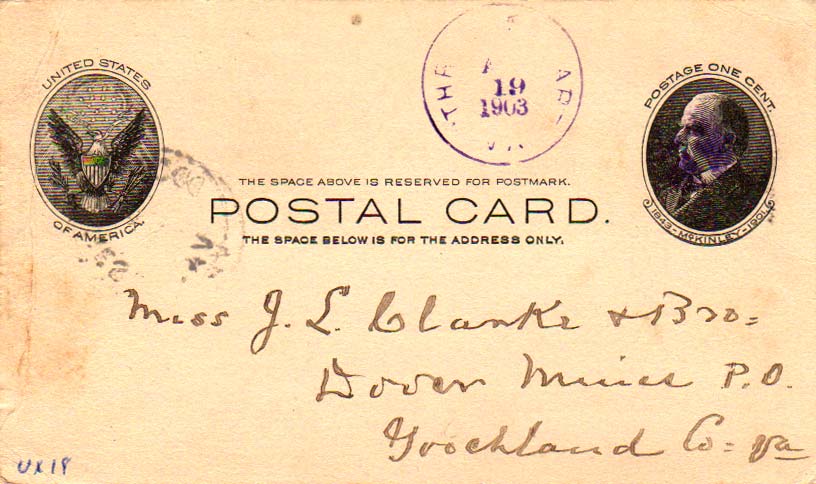 UNITED STATES
OF AMERICA.
19
1903
VA
POSTAGE ONE CENT.
1843-McKINLEY-1901
THE SPACE ABOVE IS RESERVED FOR POSTMARK.
POSTAL CARD.
THE SPACE BELOW IS FOR THE ADDRESS ONLY.
Miss J. L. Clarke & Bro=
Dover Mines P.O.
Goochland Co= Va
UX18